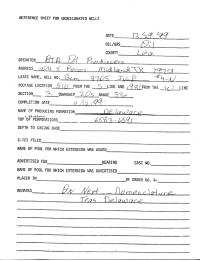 REFERENCE SHEET FOR UNDESIGNATED WELLS
DATE 12/29/99
OIL/GAS Oil
COUNTY Lea
OPERATOR BTA Oil Producers
ADDRESS 104 S Pecos Midland TX 79701
LEASE NAME, WELL NO. Gem 8705 JV-P
FOOTAGE LOCATION 510 FROM THE S LINE AND 1980 FROM THE W LINE
SECTION 2 TOWNSHIP 20S RANGE 33E
COMPLETION DATE
NAME OF PRODUCING FORMATION Delaware
TOP OF PERFORATIONS 6583-6591
DEPTH TO CASING SHOE
C-123 FILED
NAME OF POOL FOR WHICH EXTENSION WAS ASKED
ADVERTISED FOR HEARING CASE NO.
NAME OF POOL FOR WHICH EXTENSION WAS ADVERTISED
PLACED IN BY ORDER NO. R-
REMARKS On Next Nomenclature
Teas Delaware